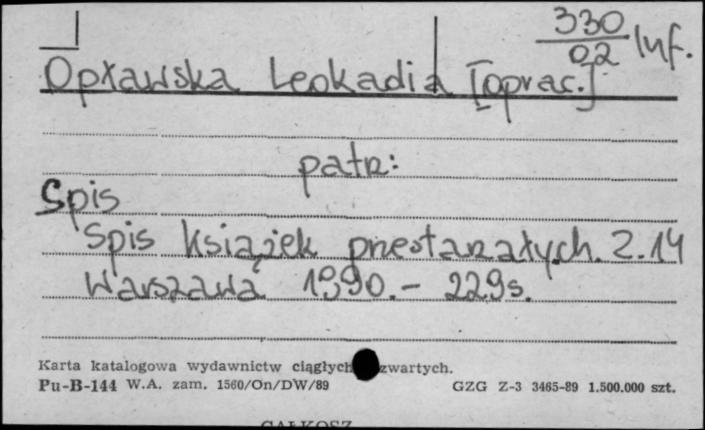 330
02 Inf.
Opławska Leokadia [oprac.]
patrz:
Spis
Spis książek przestarzałych. Z. 14
Warszawa 1990. - 229 s.
Karta katalogowa wydawnictw ciągłych zwartych.
Pu-B-144 W.A. zam. 1560/On/DW/89 GZG Z-3 3465-89 1.500.000 szt.